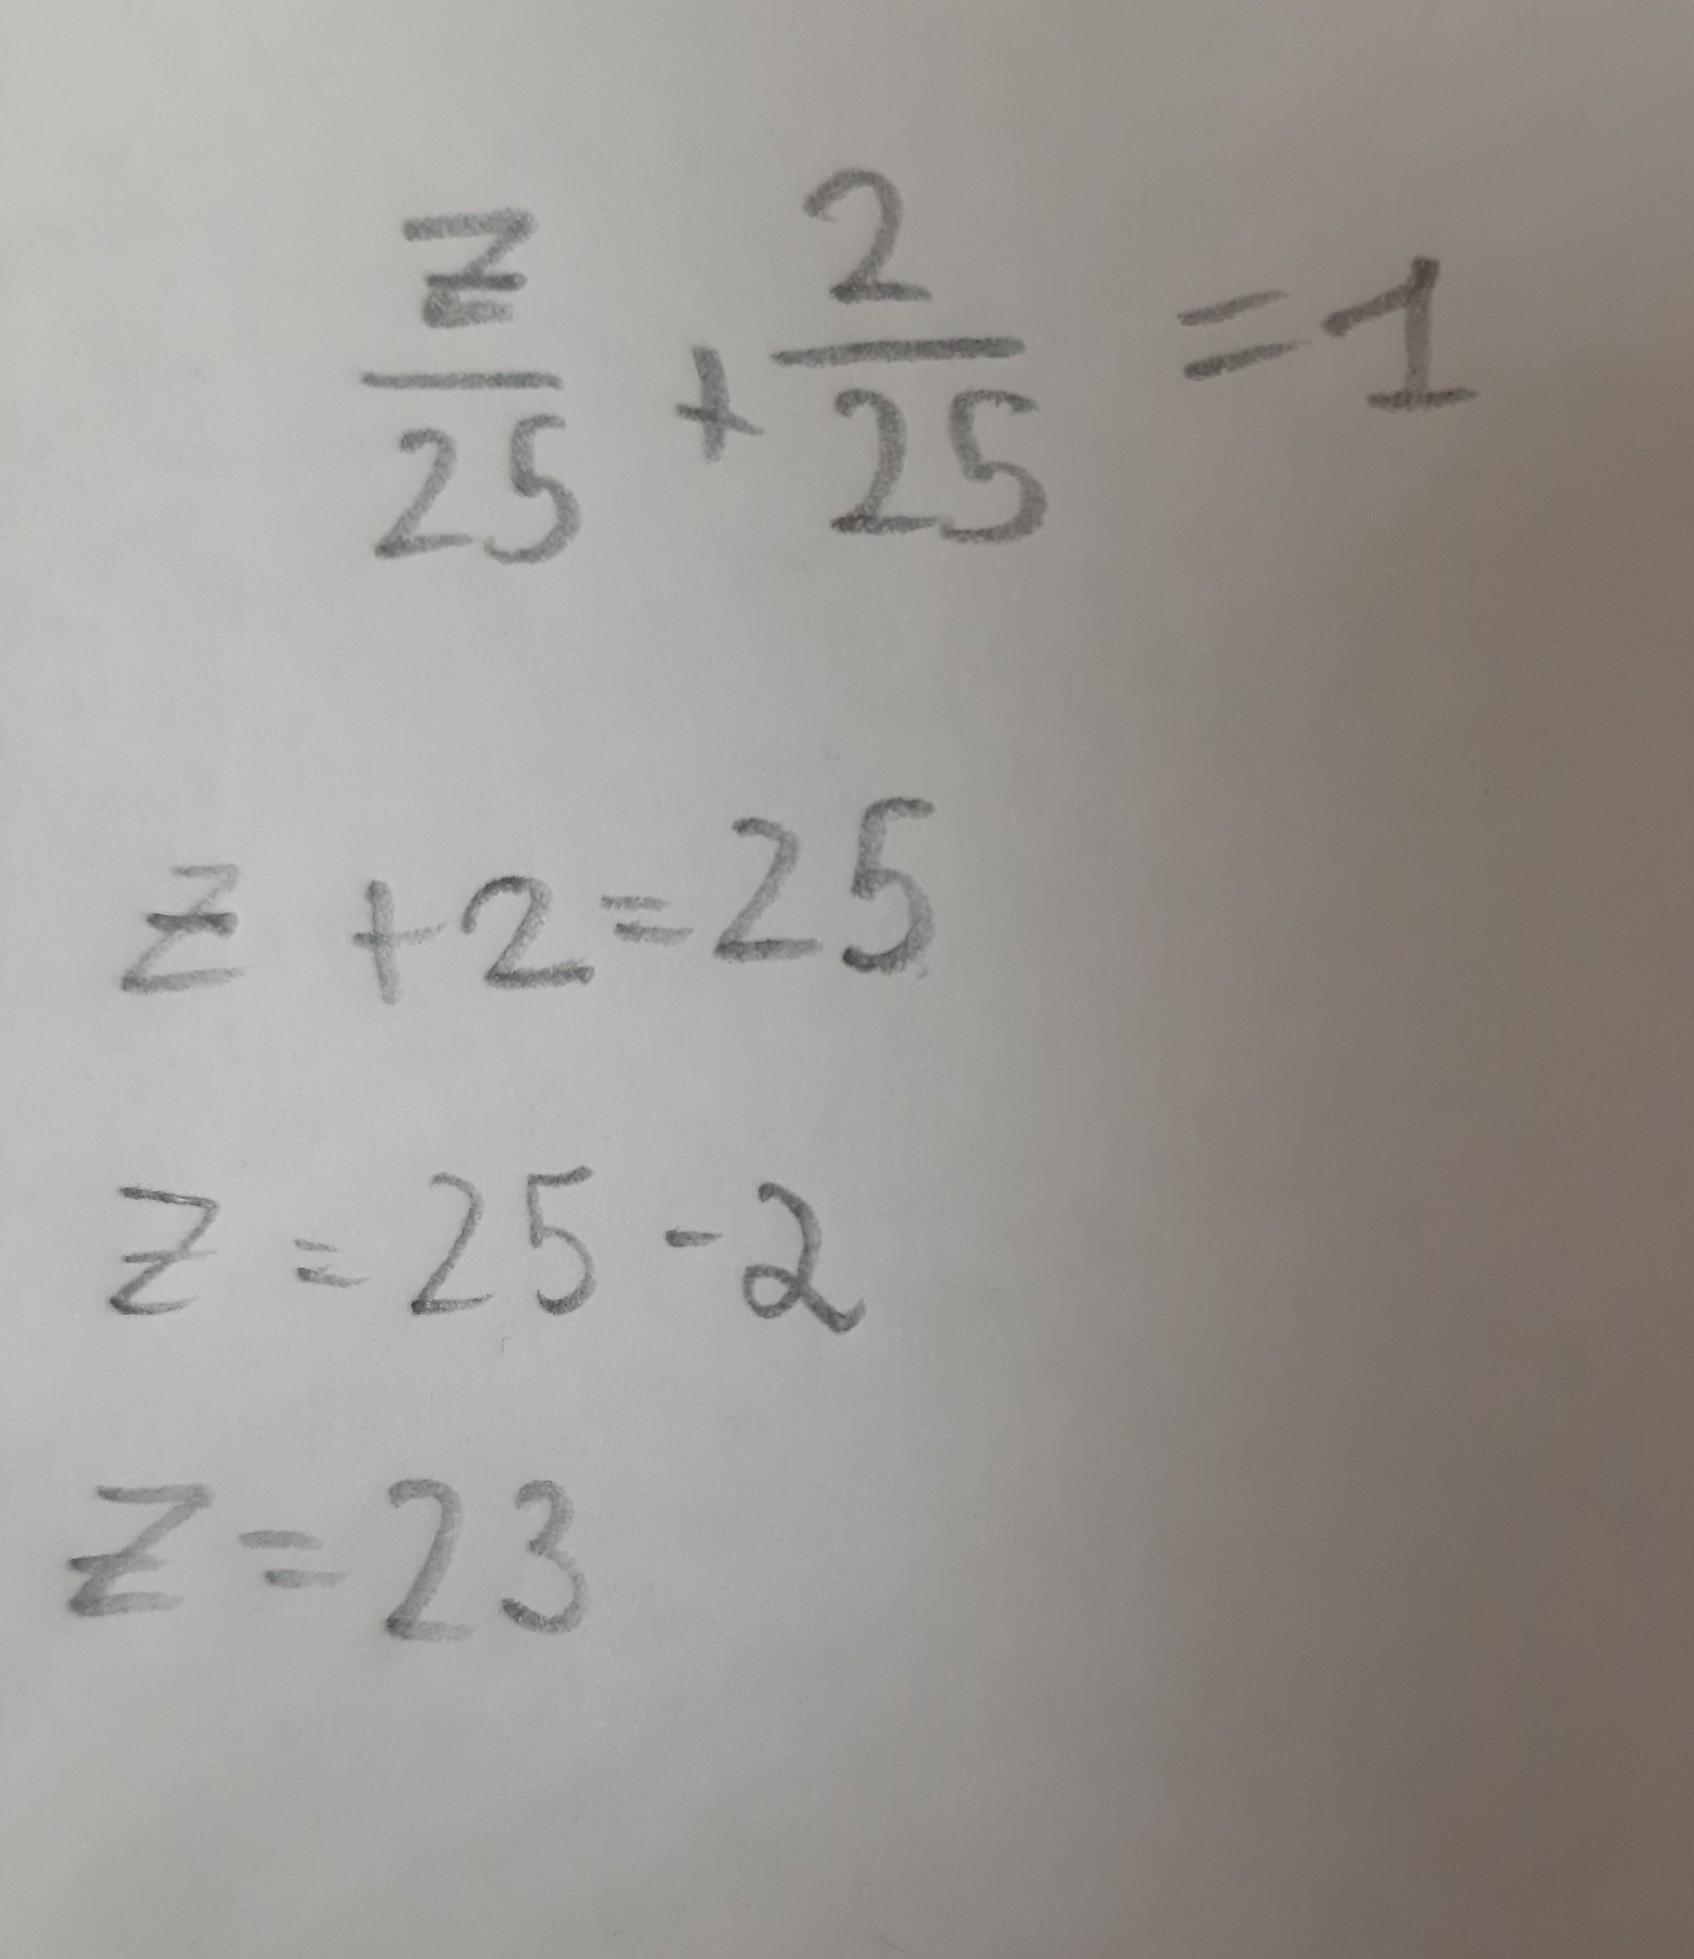 z/25 + 2/25 = 1
z + 2 = 25
z = 25 - 2
z = 23